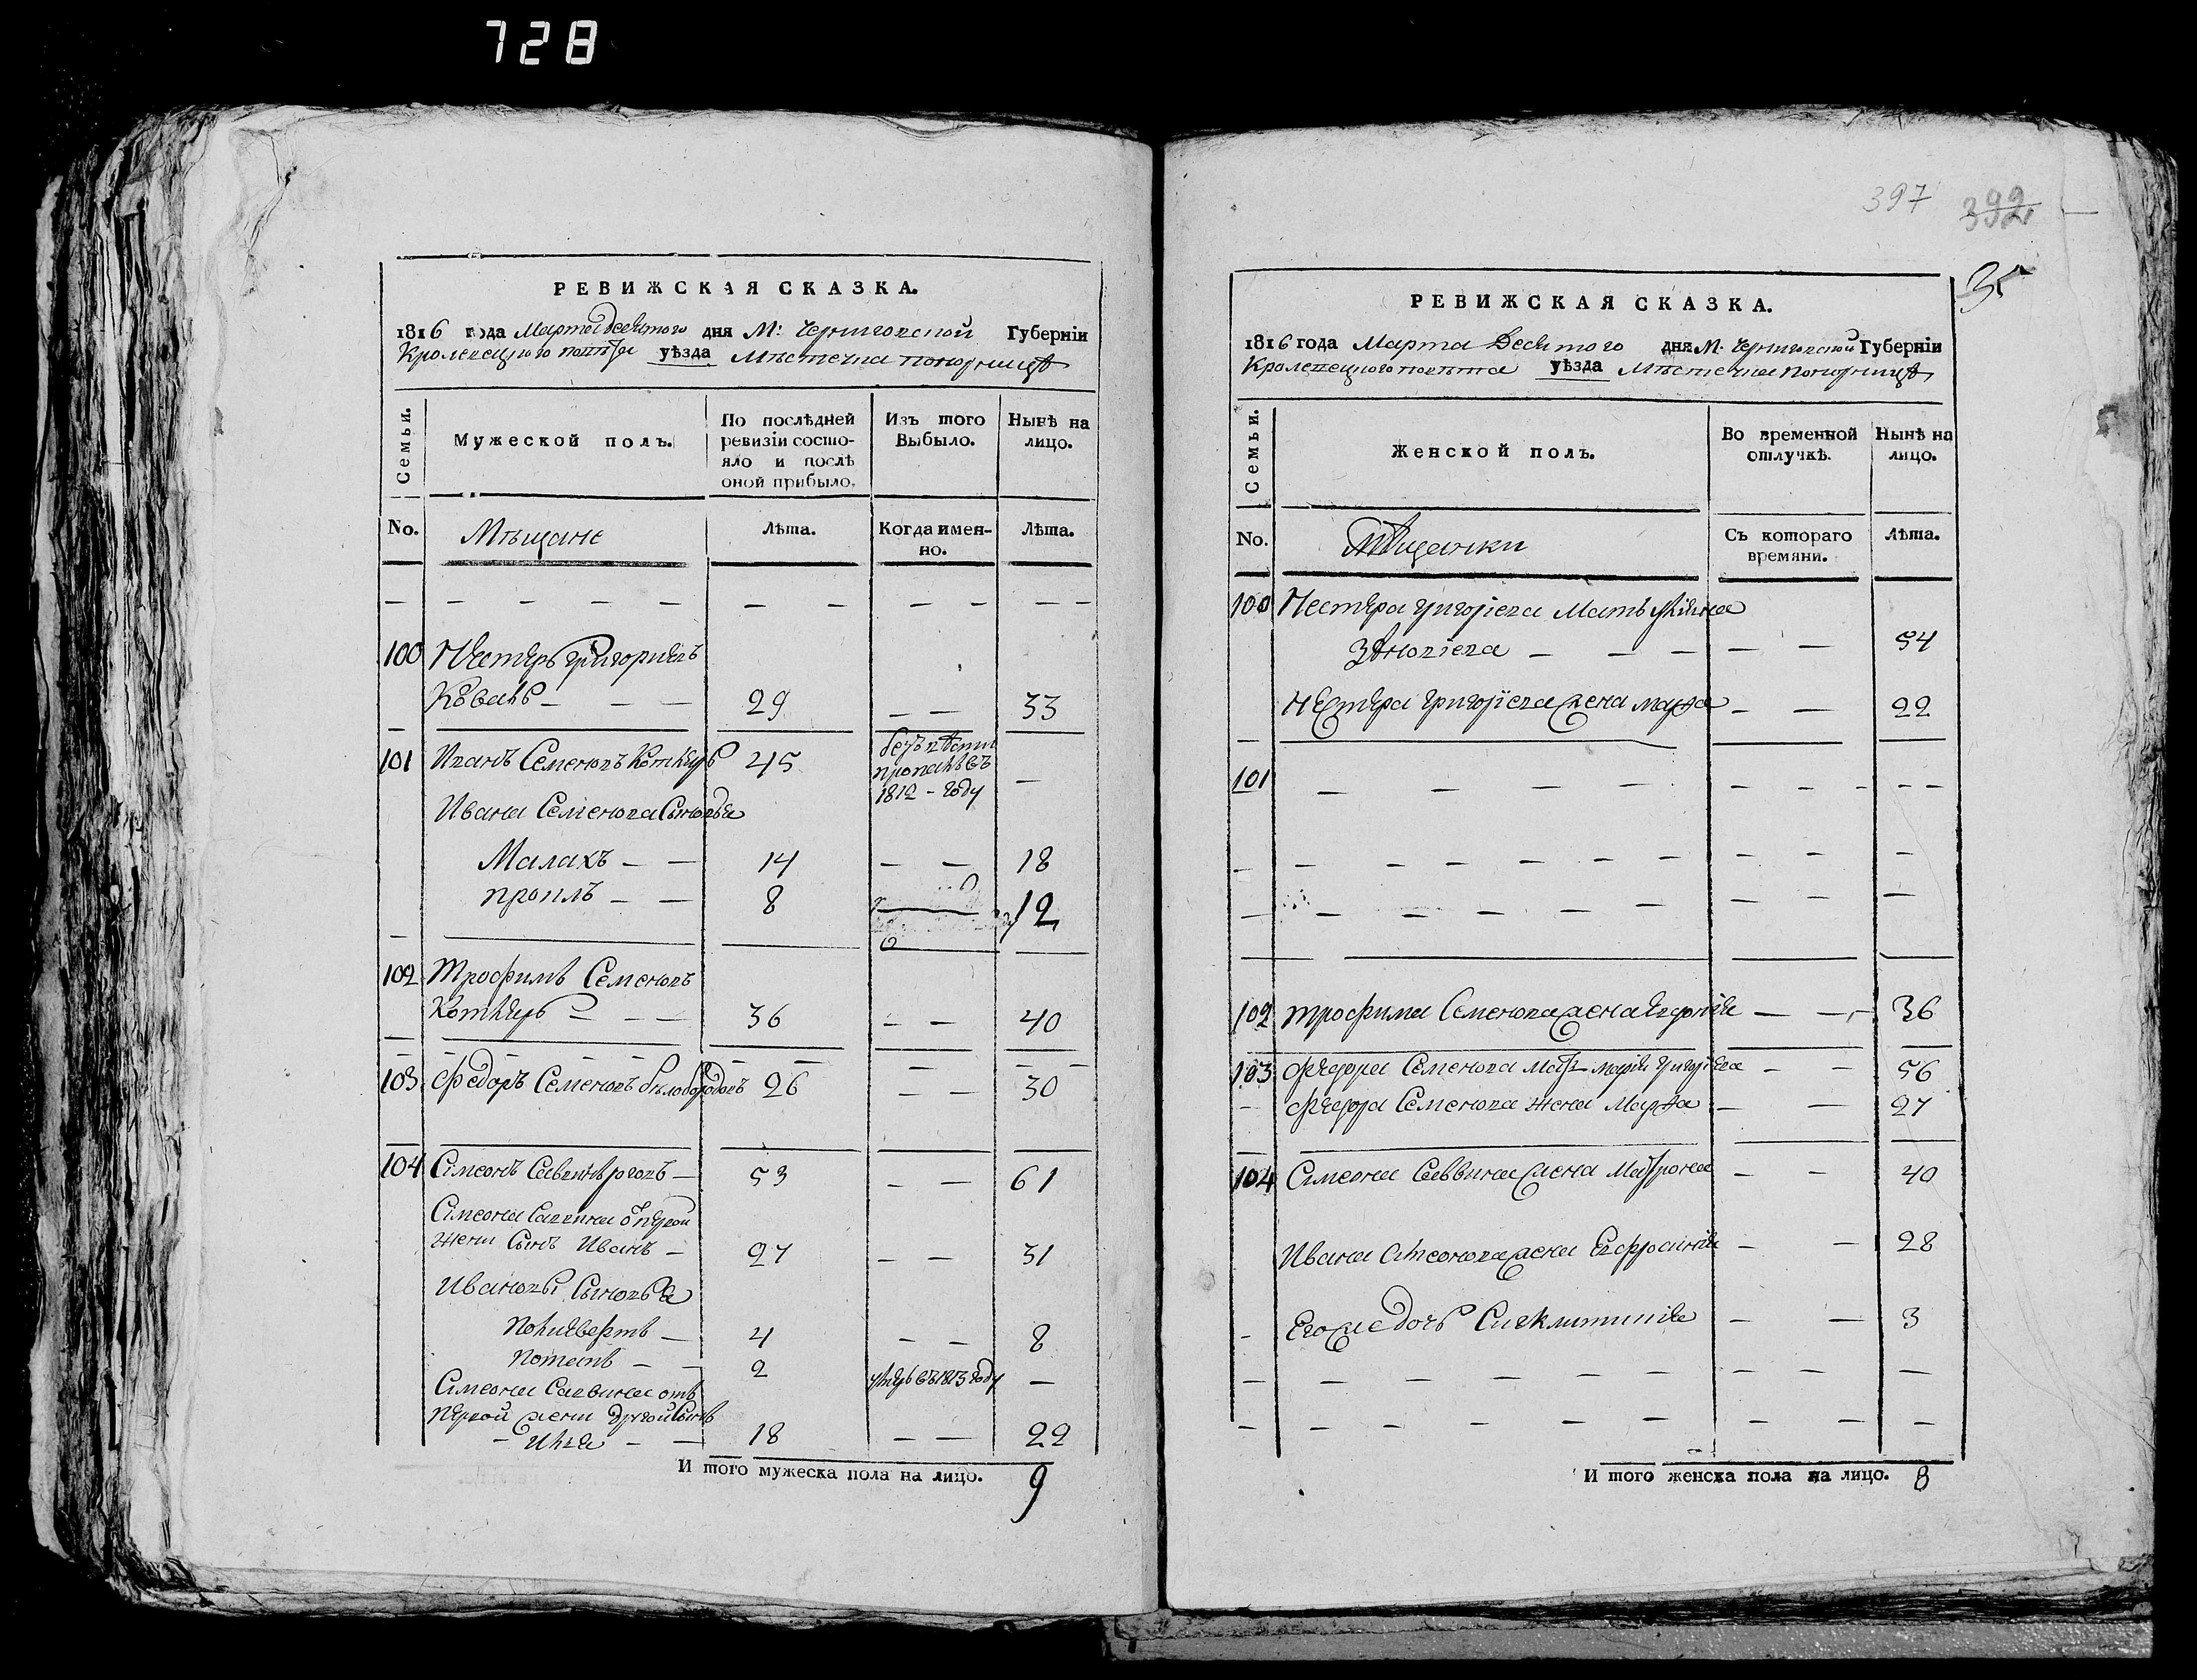 728
РЕВИЖСКАЯ СКАЗКА.
1816 года Марта десятого дня М: Черниговской Губерніи
Кролевецкого повѣта уѣзда Мѣстечка Понорницѣ
Семьи.
Мужеской полъ.
По послѣдней ревизіи состояло и послѣ оной прибыло.
Изъ того Выбыло.
Нынѣ на лицо.
No. Мѣщане
Лѣта.
Когда именно.
Лѣта.
100 Нестеръ Григориевъ
29 33
101 Иванъ Семеновъ 45 безъ вѣсти
пропалъ въ
1812 - году
Ивана Семенова Сыновья
Малахъ 14 18
8 12
102 Трофимъ Семеновъ
36 40
103 Федоръ Семеновъ Бѣлобородовъ 26 30
104 Симеонъ Саввинъ 53 61
Симеона Саввина
жени Сынъ Иванъ 27 31
Ивановы Сыновья
4 8
Потапъ 2 въ 1813 году
Симеона Саввина отъ
первой жени другой Сынъ
Илья 18 22
И того мужеска пола на лицо. 9
397 392
35
РЕВИЖСКАЯ СКАЗКА.
1816 года Марта Десятого дня М. Черниговской Губерніи
Кролевецкого повѣта уѣзда Мѣстечка Понорницѣ
Семьи.
Женской полъ.
Во временной отлучкѣ.
Нынѣ на лицо.
No. Мѣщанки
Съ котораго времяни.
Лѣта.
100 Нестера Григориева Мать
Зѣновіева 54
Нестера Григорїева жена Марфа 22
101
102 Трофима Семенова жена 36
103 Федора Семенова Мать Марія Григоріева 56
Федора Семенова жена Марфа 27
104 Симеона Саввина жена Матрона 40
Ивана Симеонова жена Евфросинія 28
Его же дочь Сигклитикія 3
И того женска пола на лицо. 8